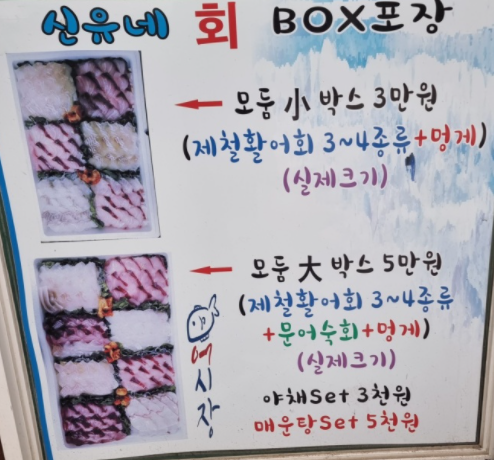 신유네 회 BOX포장
모둠 小 박스 3만원
(제철활어회 3~4종류+멍게)
(실제크기)
모둠 大 박스 5만원
(제철활어회 3~4종류
+문어숙회+멍게)
(실제크기)
야채Set 3천원
매운탕Set 5천원
어시장